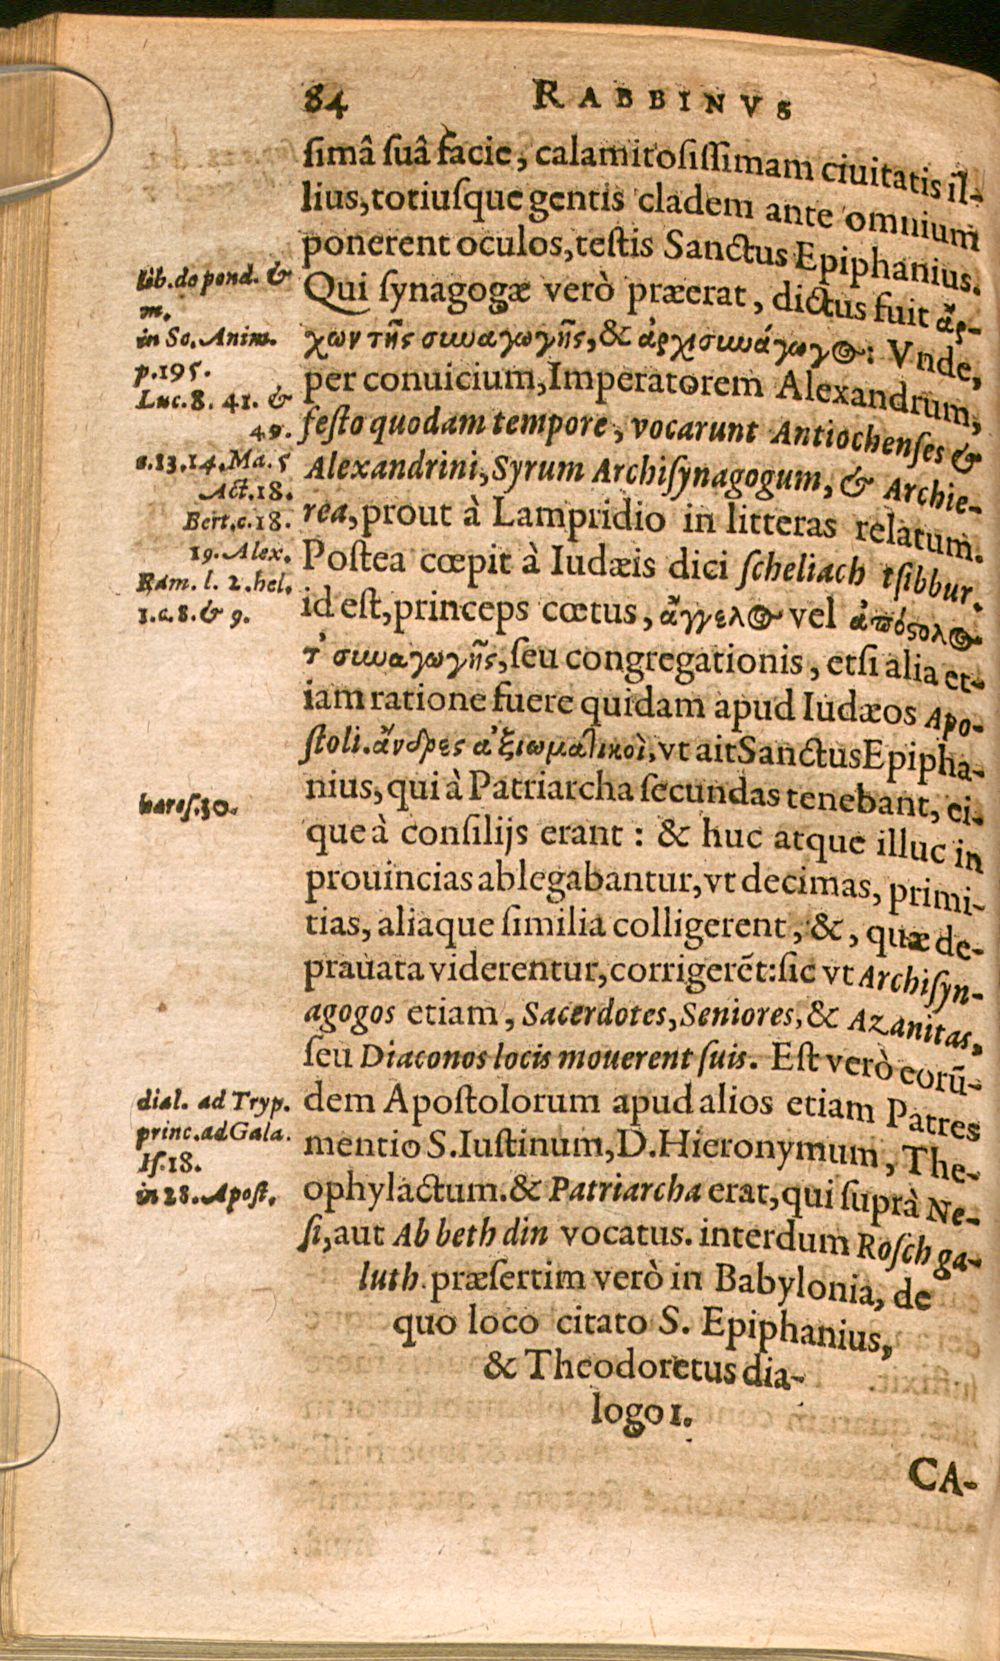 84 RABBINVS
simâ suâ facie, calamitosissimam ciuitatis il-
lius, totiusque gentis cladem ante omnium
ponerent oculos, testis Sanctus Epiphanius.
Qui synagogæ verò præerat, dictus fuit ἄρ-
χων τῆς συναγωγῆς, & ἀρχισυνάγωγος: Vnde,
per conuicium, Imperatorem Alexandrum,
festo quodam tempore, vocarunt Antiochenses &
Alexandrini, Syrum Archisynagogum, & Archie-
rea, prout à Lampridio in litteras relatum.
Postea cœpit à Iudæis dici scheliach tsibbur.
id est, princeps cœtus, ἄγγελος vel ἀπόστολος
τ῀ συναγωγῆς, seu congregationis, etsi alia et-
iam ratione fuere quidam apud Iudæos Apo-
stoli. ἄνδρες ἀξιωματικοὶ, vt ait Sanctus Epipha-
nius, qui à Patriarcha secundas tenebant, ei-
que à consilijs erant: & huc atque illuc in
prouincias ablegabantur, vt decimas, primi-
tias, aliaque similia colligerent, &, quæ de-
prauata viderentur, corrigerēt: sic vt Archisyn-
agogos etiam, Sacerdotes, Seniores, & Azanitas,
seu Diaconos locis mouerent suis. Est verò eorū-
dem Apostolorum apud alios etiam Patres
mentio S. Iustinum, D. Hieronymum, The-
ophylactum. & Patriarcha erat, qui suprà Ne-
si, aut Ab beth din vocatus. interdum Rosch ga-
luth. præsertim verò in Babylonia, de
quo loco citato S. Epiphanius,
& Theodoretus dia-
logo 1.
CA-
lib. de pond. &
m.
in Sc. Anim.
p. 195.
Luc. 8. 41. &
49.
c. 13. 14. Ma. 5
Act. 18.
Bert. c. 18.
19. Alex.
Ram. l. 2. hel.
1. c. 8. & 9.
hæres. 30.
dial. ad Tryp.
princ. ad Gala.
Is. 18.
in 28. Apost.